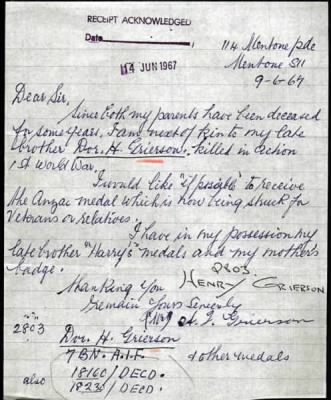 RECEIPT ACKNOWLEDGED
Date
14 JUN 1967
114 Mentone Pde
Mentone S11
9-6-67
Dear Sir,
Since both my parents have been deceased
for some years, I am next of kin to my late
brother Dvr. H. Grierson, killed in action
1st World War.
I would like "if possible" to receive
the Anzac medal which is now being struck for
Veterans or relatives.
I have in my possession my
late brother "Harry's" medals and my mother's
badge.
2803.
HENRY GRIERSON
Thanking You
I remain Yours Sincerely
Grierson
2803
Dvr. H. Grierson
7 BN. A.I.F.
& other medals
also
18160/DECD.
18230/DECD.